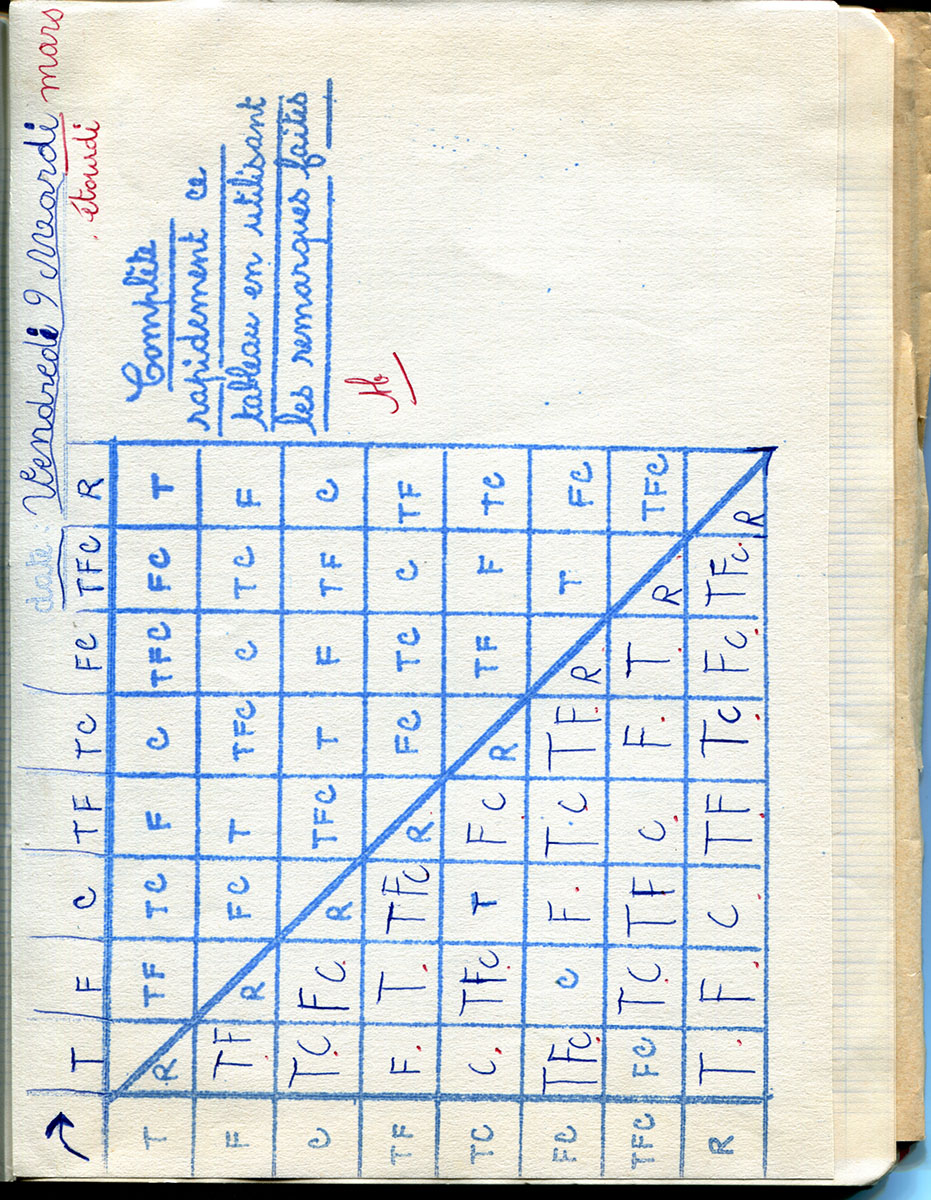 date: Vendredi 9 Mardi mars
étourdi
T F C TF TC FC TFC R
T R TF TC F C TFC FC T
F TF R FC T TFC C TC F
C TC FC R TFC T F TF C
TF F T TFC R FC TC C TF
TC C TFC T FC R TF F TC
FC TFC C F TC TF R T FC
TFC FC TC TF C F T R TFC
R T F C TF TC FC TFC R
Complète
rapidement ce
tableau en utilisant
les remarques faites